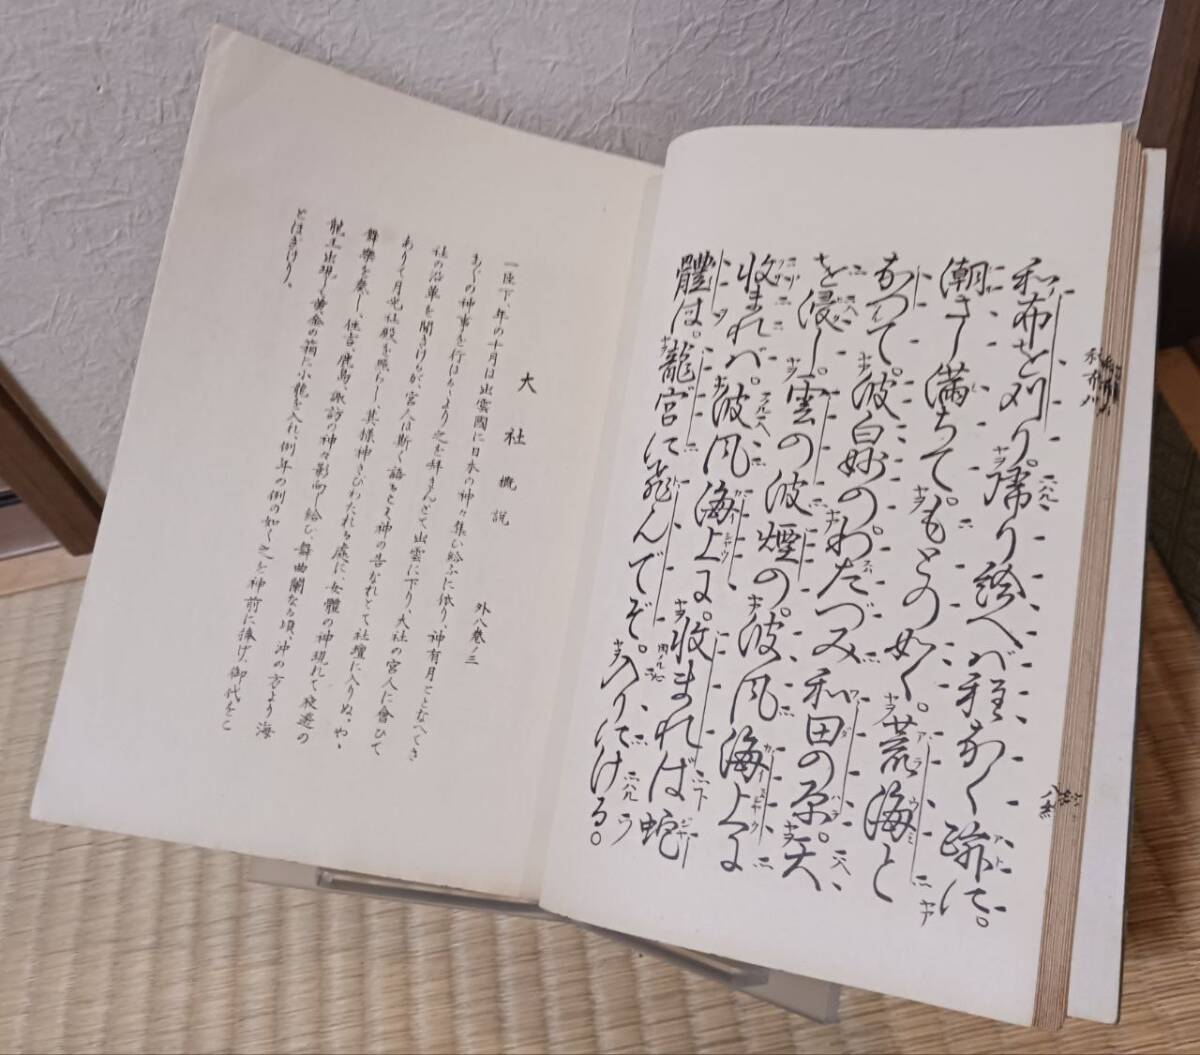 和布を刈り。帰り給へば程なく跡に。
潮さし満ちて。もとの如く。荒海と
なつて。波白妙のわたづみ和田の原。天
を浸し。雲の波煙の。波風海上に
收まれば。波風海上に。收まれば蛇
體は。龍宮に飛んでぞ。入りにける。
和布八
大社概説
外八巻ノ三
一臣下、年の十月は出雲國に日本の神々集ひ給ふに依り、神有月ととなへてさ
まざまの神事を行はるゝより之を拜まんとて出雲に下り、大社の宮人に會ひて
社の沿革を聞きけるが、宮人は斯く語るこそ神の告なれとて社壇に入りぬ。や、
ありて月光社殿を照らし、其樣神さびわたれる處に、女體の神現れて夜遊の
舞樂を奏し、住吉、鹿島、諏訪の神々影向し給ひ、舞曲闌なる頃、沖の方より海
龍王出現し黄金の箱に小龍を入れ、例年の例の如く之を神前に捧げ、御代をこ
とほぎけり。